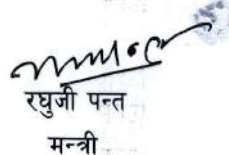 रघुजी पन्त
मन्त्री